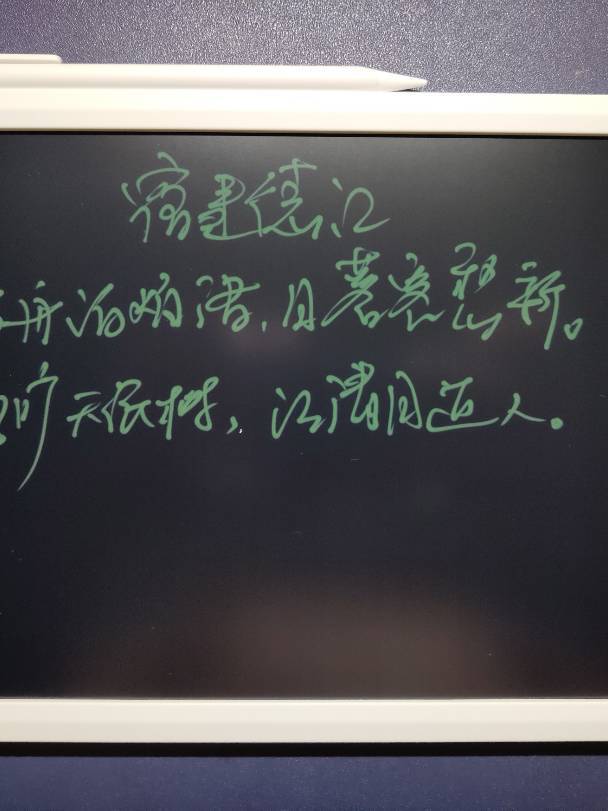 宿建德江
舟泊烟渚，日暮客愁新。
旷天低树，江清月近人。